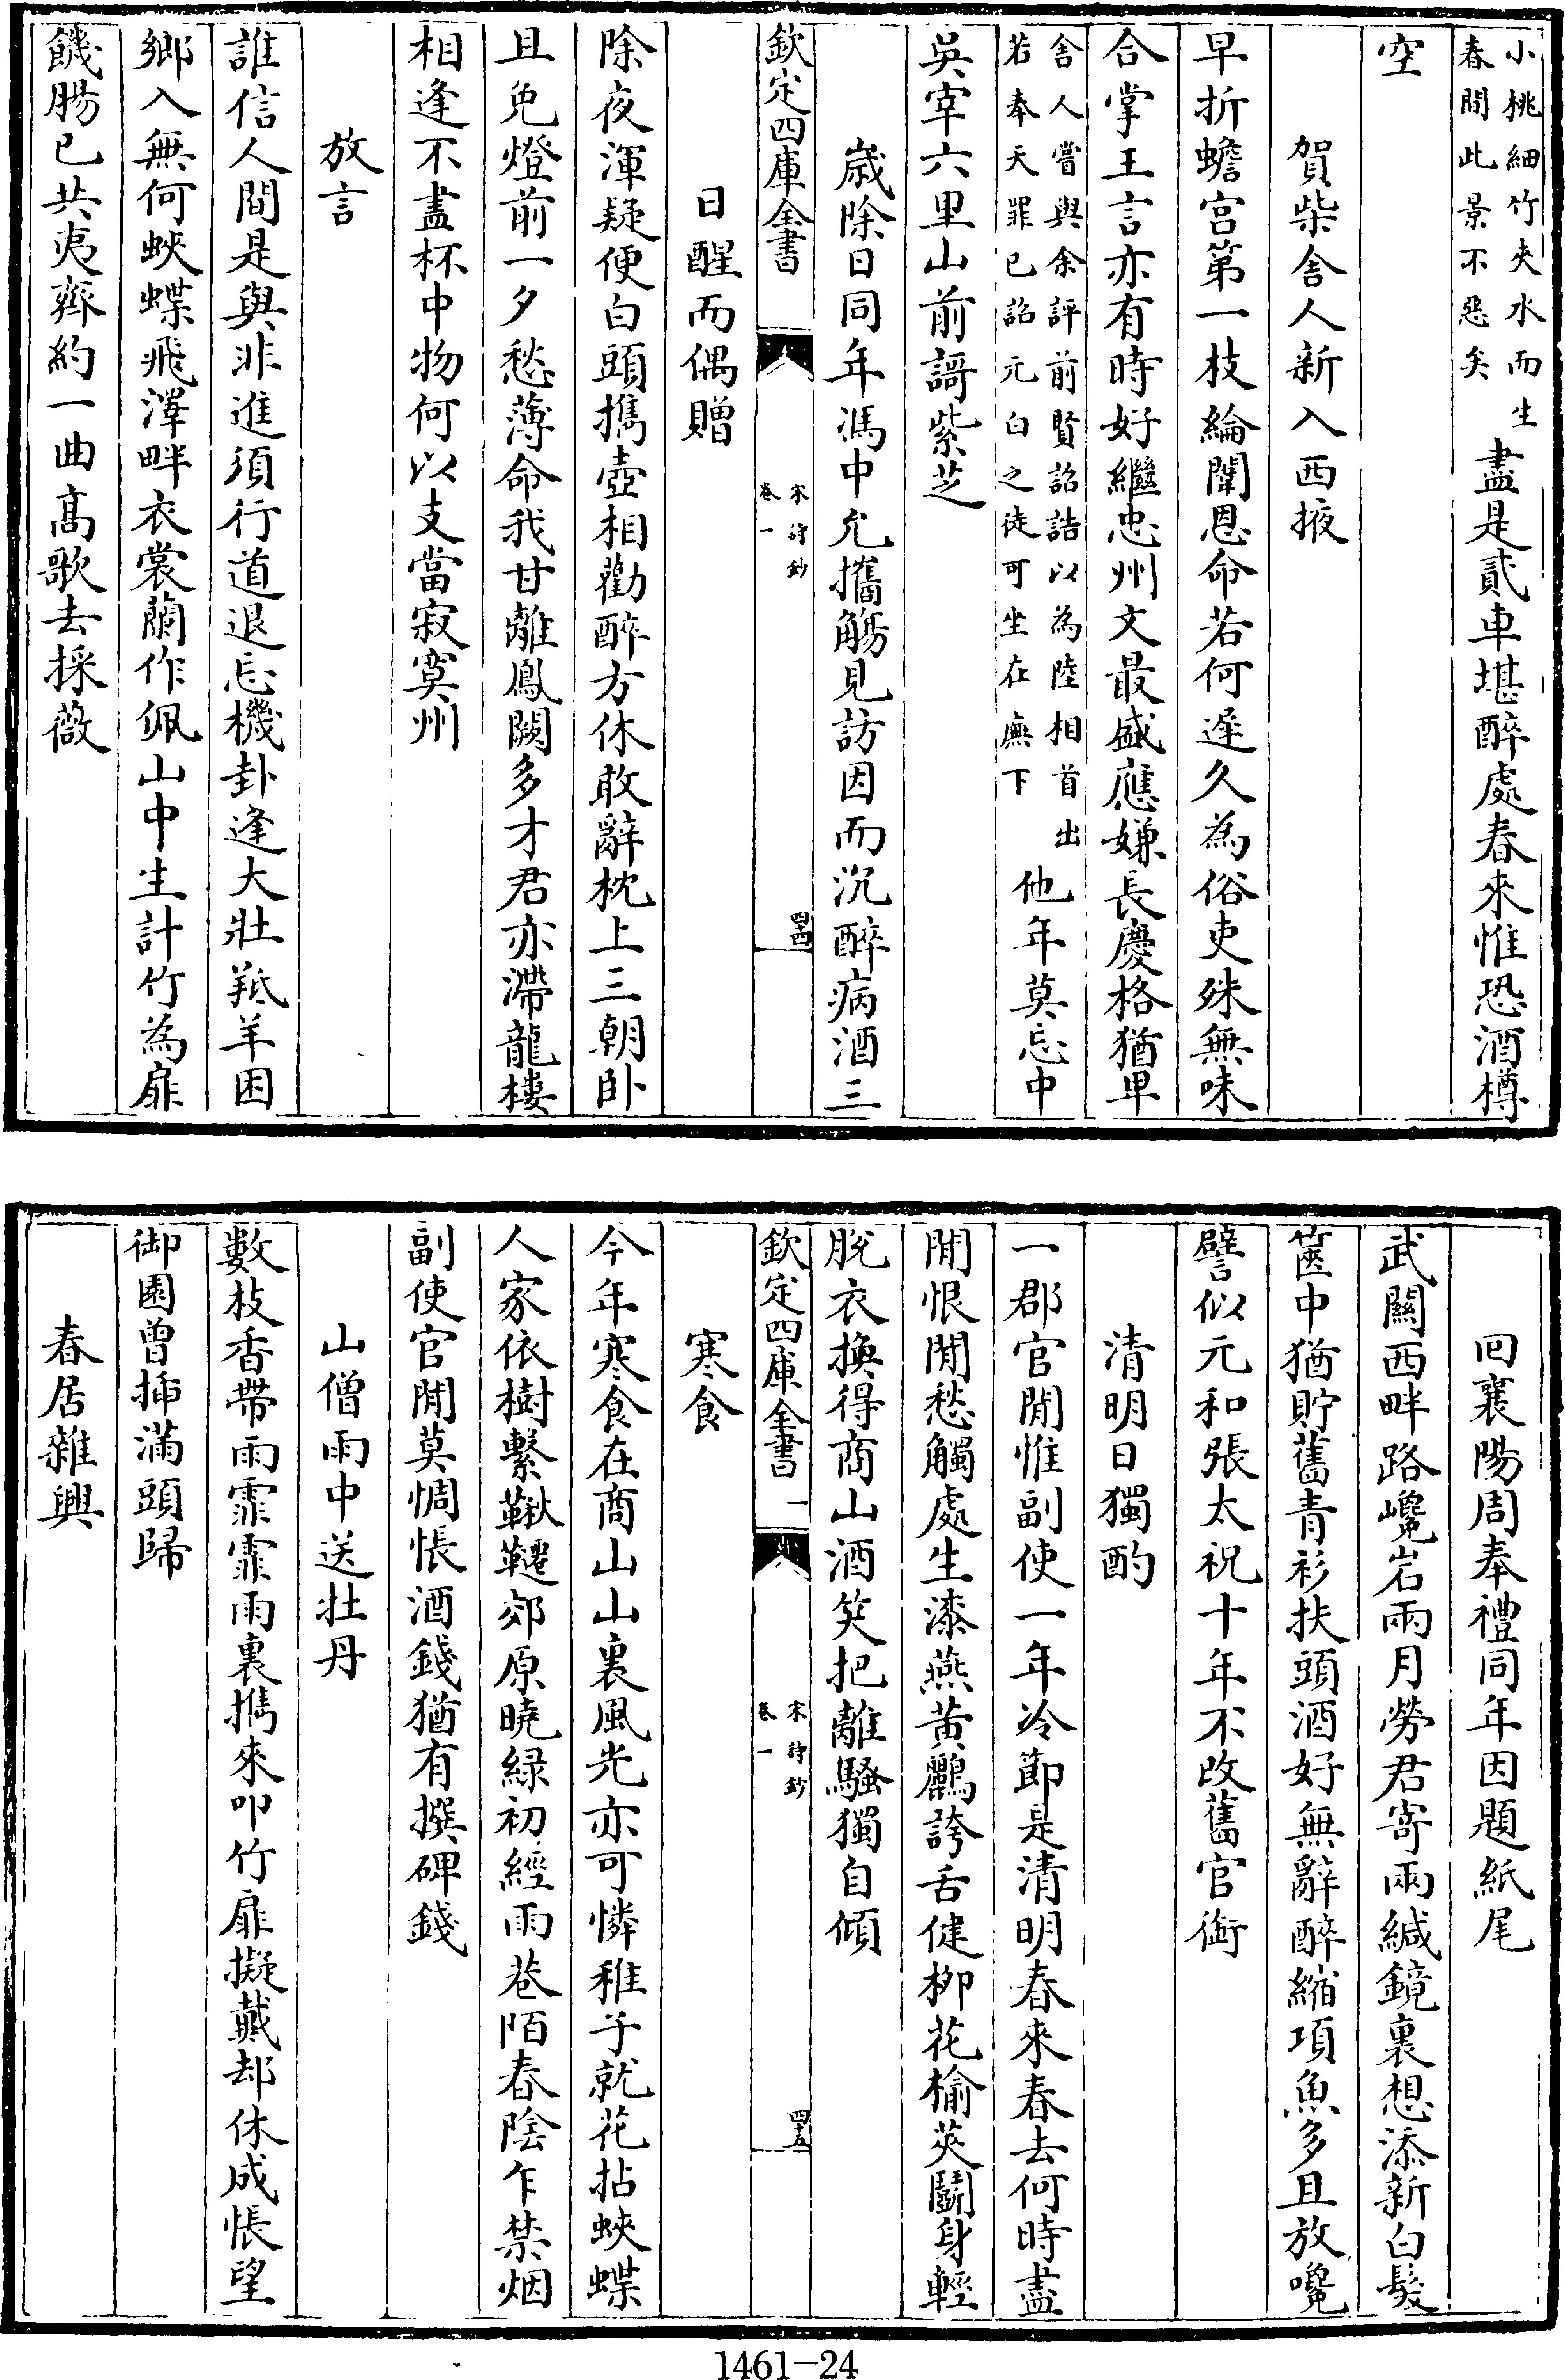 小桃細竹夾水而生
春間此景不惡矣
盡是貳車堪醉處春來惟恐酒樽
空
賀柴舍人新入西掖
早折蟾宫第一枝綸闈恩命若何遲久為俗吏殊無味
合掌王言亦有時好繼忠州文最盛應嫌長慶格猶卑
舍人嘗與余評前賢詔誥以為陸相首出
若奉天罪已詔元白之徒可坐在廡下
他年莫忘中
吳宰六里山前謌紫芝
歲除日同年馮中允攜觴見訪因而沉醉病酒三
欽定四庫全書
宋詩鈔
卷一
四十四
日醒而偶贈
除夜渾疑便白頭擕壺相勸醉方休敢辭枕上三朝卧
且免燈前一夕愁薄命我甘離鳳闕多才君亦滯龍樓
相逢不盡杯中物何以支當寂寞州
放言
誰信人間是與非進須行道退忘機卦逢大壯羝羊困
鄉入無何蛺蝶飛澤畔衣裳蘭作佩山中生計竹為扉
饑腸已共夷齊約一曲髙歌去採薇
回襄陽周奉禮同年因題紙尾
武關西畔路巉岩兩月勞君寄兩緘鏡裏想添新白髮
篋中猶貯舊青衫扶頭酒好無辭醉縮項魚多且放嚵
譬似元和張太祝十年不改舊官銜
清明日獨酌
一郡官閒惟副使一年冷節是清明春來春去何時盡
閒恨閒愁觸處生漆燕黄鸝誇舌健栁花榆莢鬬身輕
脱衣換得商山酒笑把離騷獨自傾
欽定四庫全書
宋詩鈔
卷一
四十五
寒食
今年寒食在商山山裏風光亦可憐稚子就花拈蛺蝶
人家依樹繫鞦韆郊原曉緑初經雨巷陌春陰乍禁烟
副使官閒莫惆悵酒錢猶有撰碑錢
山僧雨中送牡丹
數枝香帶雨霏霏雨裏擕來叩竹扉擬戴却休成悵望
御園曾插滿頭歸
春居雜興
1461-24